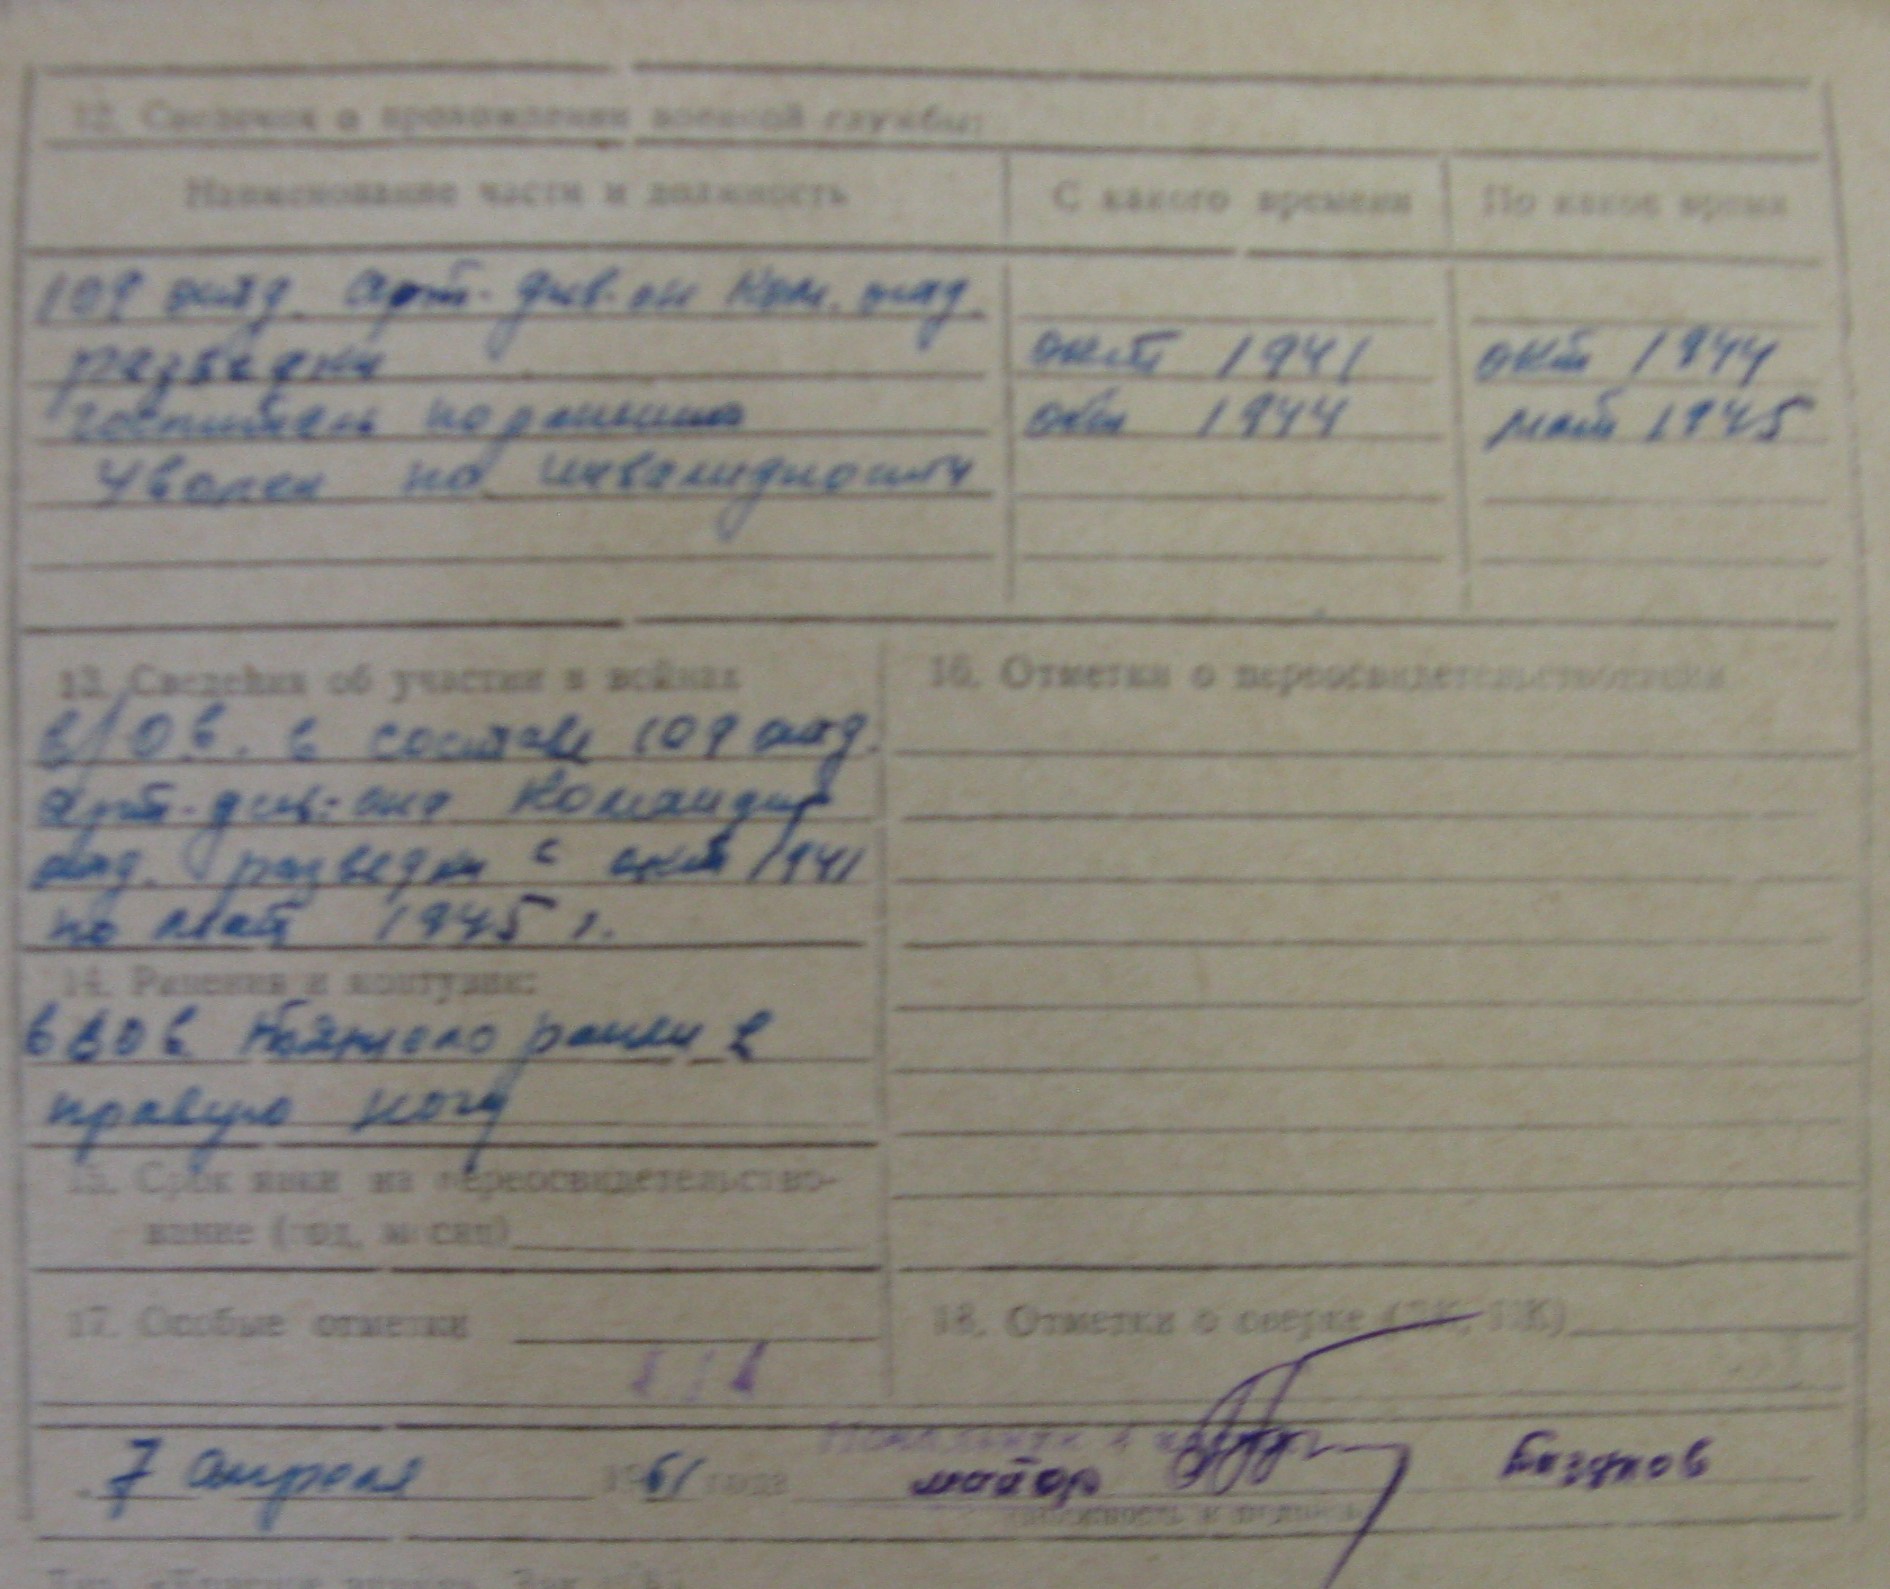 12. Сведения о прохождении военной службы:
Наименование части и должность
С какого времени
По какое время
109 отд. арт-див-он Ком. отд.
разведки
окт 1941
окт 1944
госпиталь по ранению
окт 1944
май 1945
Уволен по инвалидности
13. Сведения об участии в войнах
в составе 109 отд.
арт-див-она Командир
отд. разведки с окт 1941
по май 1945 г.
14. Ранения и контузии:
в ВОВ ранен в
правую ногу
15. Срок явки на переосвидетельство-
вание (год, месяц)
16. Отметки о переосвидетельствовании
17. Особые отметки
18. Отметки о сверке
7 апреля 1961 года
майор
(должность и подпись)